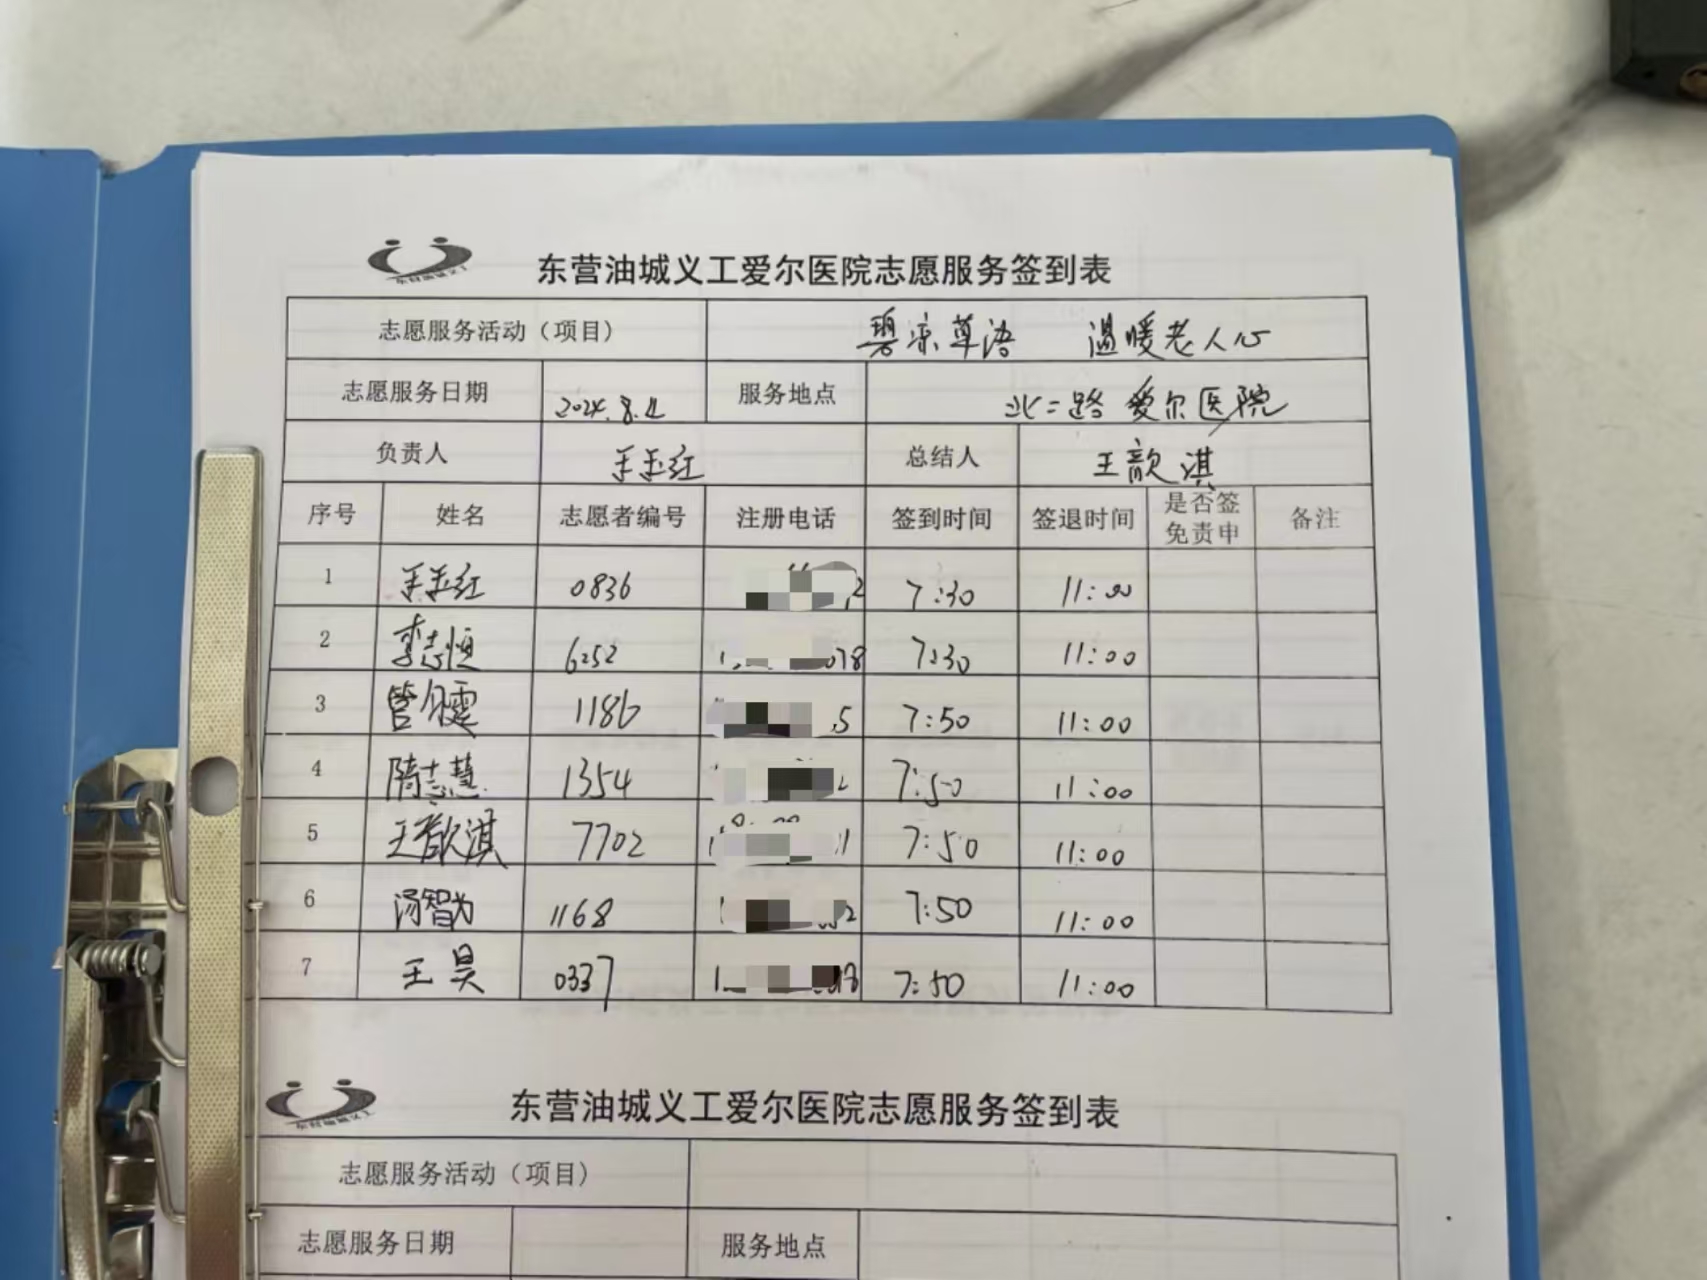 东营油城义工
东营油城义工爱尔医院志愿服务签到表
志愿服务活动（项目） 碧凉草语 温暖老人心
志愿服务日期 2024.8.11 服务地点 北二路 爱尔医院
负责人 王玉红 总结人 王歆淇
序号 姓名 志愿者编号 注册电话 签到时间 签退时间 是否签免责申 备注
1 王玉红 0836 2 7:30 11:00
2 李志恒 6252 078 7:30 11:00
3 管 1186 5 7:50 11:00
4 隋志慧 1354 2 7:50 11:00
5 王歆淇 7702 11 7:50 11:00
6 汤智为 1168 2 7:50 11:00
7 王昊 0337 7:50 11:00
东营油城义工
东营油城义工爱尔医院志愿服务签到表
志愿服务活动（项目）
志愿服务日期 服务地点